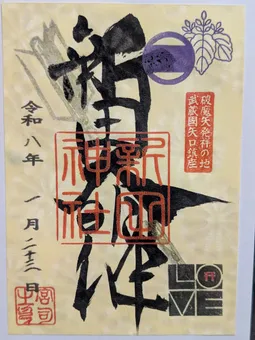 破魔矢発祥の地
武蔵國矢口鎮座
新田
神社
令和八年 一月二十二日
LOVE